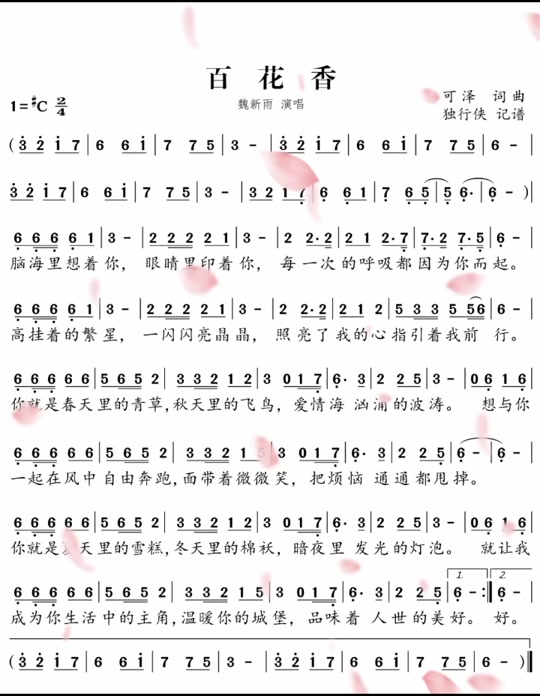 百花香
1=♯C 2/4
魏新雨 演唱
可泽 词曲
独行侠 记谱
(3 2 1 7 | 6 6 1 | 7 7 5 | 3 - | 3 2 1 7 | 6 6 1 | 7 7 5 | 6 - |
3 2 1 7 | 6 6 1 | 7 7 5 | 3 - | 3 2 1 7 | 6 6 1 | 7 6 5 | 5 6· | 6 - )|
6 6 6 6 1 | 3 - | 2 2 2 2 1 | 3 - | 2 2·2 | 2 1 2·7 | 7·2 7·5 | 6 - |
脑海里想着你，眼睛里印着你，每一次的呼吸都因为你而起。
6 6 6 6 1 | 3 - | 2 2 2 2 1 | 3 - | 2 2·2 | 2 1 2 | 5 3 3 5 5 6 | 6 - |
高挂着的繁星，一闪闪亮晶晶，照亮了我的心指引着我前行。
6 6 6 6 6 | 5 6 5 2 | 3 3 2 1 2 | 3 0 1 7 | 6· 3 | 2 2 5 | 3 - | 0 6 1 6 |
你就是春天里的青草,秋天里的飞鸟，爱情海汹涌的波涛。想与你
6 6 6 6 6 | 5 6 5 2 | 3 3 2 1 2 | 3 0 1 7 | 6· 3 | 2 2 1 | 6 - | 6 - |
一起在风中自由奔跑,面带着微微笑，把烦恼通通都甩掉。
6 6 6 6 6 | 5 6 5 2 | 3 3 2 1 2 | 3 0 1 7 | 6· 3 | 2 2 5 | 3 - | 0 6 1 6 |
你就是夏天里的雪糕,冬天里的棉袄，暗夜里发光的灯泡。就让我
1. 2.
6 6 6 6 6 | 5 6 5 2 | 3 3 2 1 2 | 3 0 1 7 | 6· 3 | 2 2 1 | 6 - :‖ 6 - |
成为你生活中的主角,温暖你的城堡，品味着人世的美好。好。
(3 2 1 7 | 6 6 1 | 7 7 5 | 3 - | 3 2 1 7 | 6 6 1 | 7 7 5 | 6 - )‖